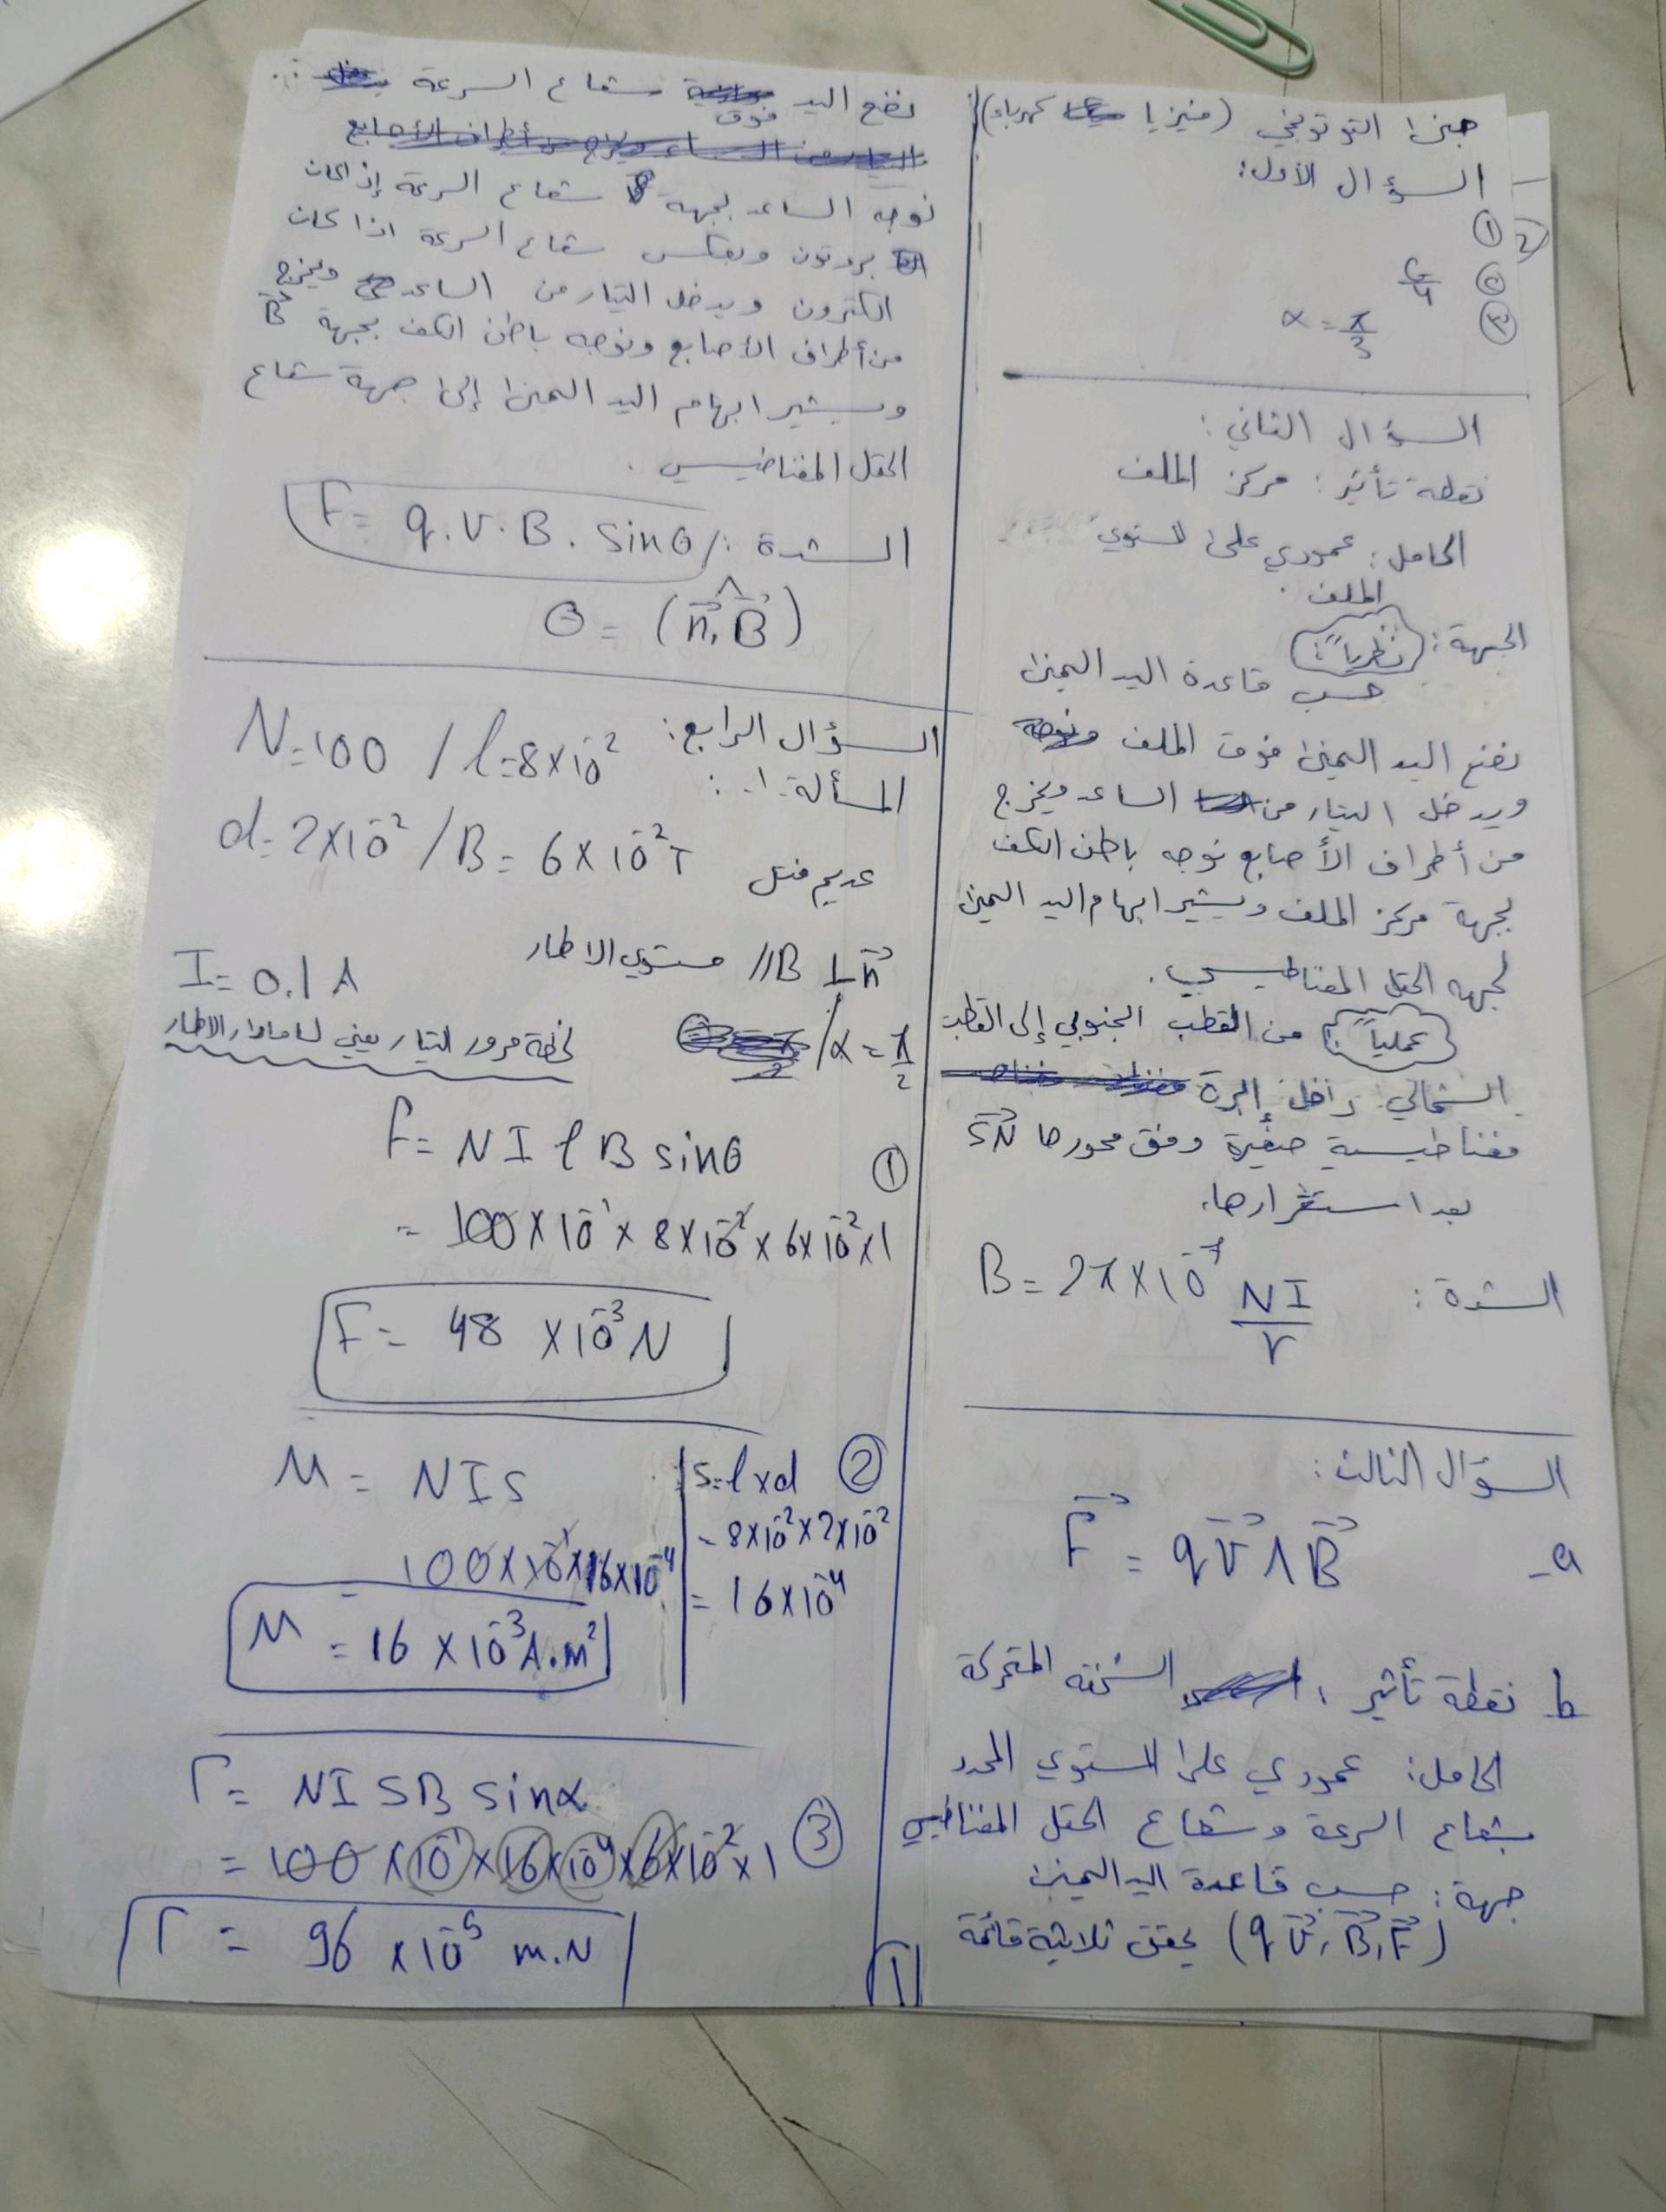 جنى التوتونجي (فيزيا كهرباء)
السؤال الأول:
①
②
③ α = π/3
السؤال الثاني:
نقطة تأثير: مركز الملف
الحامل: عمودي على المستوي
الملف.
الجهة: نظرياً: حسب قاعدة اليد اليمنى
نضع اليد اليمنى فوق الملف
ويدخل التيار من الساعد ويخرج
من أطراف الأصابع نوجه باطن الكف
لجهة مركز الملف ويشير ابهام اليد اليمنى
لجهه الحقل المغناطيسي.
عملياً: من القطب الجنوبي إلى القطب
الشمالي داخل إبرة
مغناطيسية صغيرة وفق محورها SN
بعد استقرارها.
الشدة: B = 2π×10⁻⁷ NI/r
السؤال الثالث:
a- F⃗ = qV⃗ Λ B⃗
b نقطة تأثير: الشحنة المتحركة
الحامل: عمودي على المستوي المحدد
بشعاع السرعة وشعاع الحقل المغناطيسي
جهة: حسب قاعدة اليد اليمنى
(qV⃗, B⃗, F⃗) يحقق ثلاثية قائمة
نضع اليد فوق شعاع السرعة
نوجه الساعد بجهة شعاع السرعة إذا كان
بروتون وبعكس شعاع السرعة اذا كان
الكترون ويدخل التيار من الساعد ويخرج
من أطراف الأصابع ونوجه باطن الكف بجهة B⃗
ويشير ابهام اليد اليمنى إلى جهة شعاع
الحقل المغناطيسي.
الشدة: F = q.V.B.sinθ
θ = (n⃗, B⃗)
السؤال الرابع: N=100 / l=8×10⁻²
المسألة-١-:
d=2×10⁻² / B= 6×10⁻² T عديم فتل
B // مستوي الاطار ⊥ n⃗
I= 0.1 A
α = π/2 /
لحظة مرور التيار يعني لسا مادار الاطار
① F= NI l B sinθ
= 100×10⁻¹×8×10⁻²×6×10⁻²×1
F= 48 ×10⁻³ N
② S=l×d
= 8×10⁻²×2×10⁻²
= 16×10⁻⁴
M = NIS
= 100×10⁻¹×16×10⁻⁴
M = 16 ×10⁻³ A.m²
Γ= NISB sinα
③ = 100×10⁻¹×16×10⁻⁴×6×10⁻²×1
Γ = 96 ×10⁻⁵ m.N
1